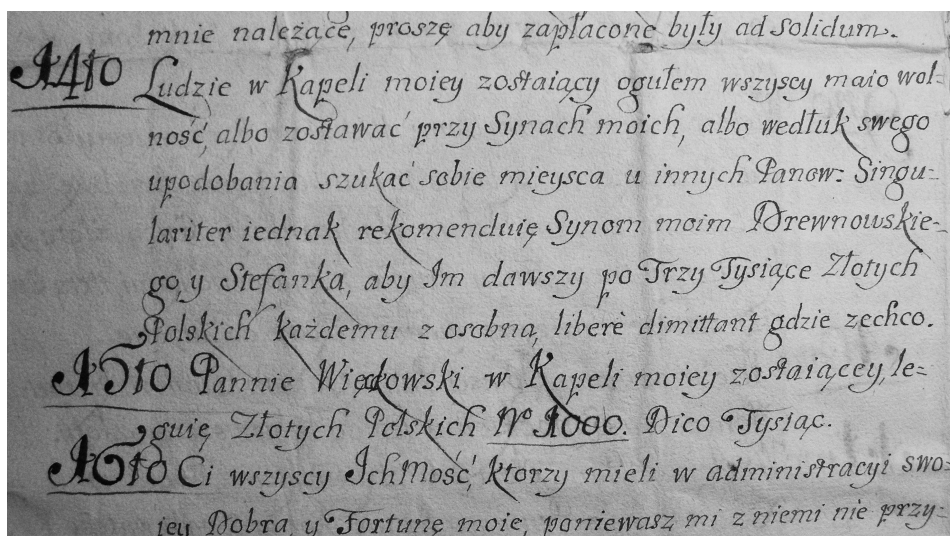 mnie należące, proszę aby zapłacone były ad Solidum.
14to Ludzie w Kapeli moiey zostaiący ogułem wszyscy maio wol=
ność, albo zostawać przy Synach moich, albo wedłuk swego
upodobania szukać sobie mieysca u innych Panow: Singu=
lariter iednak rekomenduię Synom moim Drewnowskie=
go, y Stefanka, aby Im dawszy po Trzy Tysiące Złotych
Polskich każdemu z osobna, liberè dimittant gdzie zechco.
15to Pannie Więckowski w Kapeli moiey zostaiącey, le=
guię Złotych Polskich No 1000. Dico Tysiąc.
16to Ci wszyscy Ichmość, ktorzy mieli w administracyi swo=
iey Dobra y Fortunę moie, poniewasz mi z niemi nie przy=